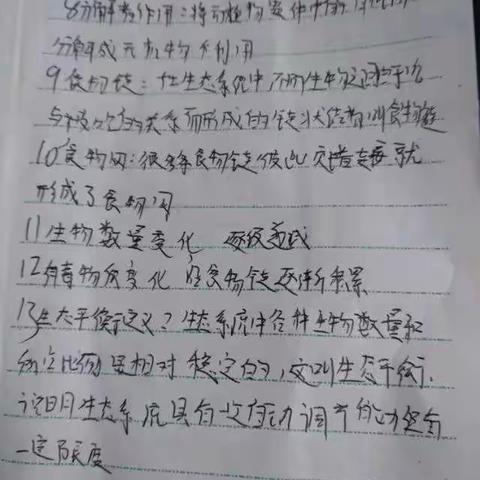 8分解者作用:将动植物遗体中的有机物
分解成无机物供利用
9食物链:在生态系统中不同生物之间由于吃
与被吃的关系而形成的链状结构叫食物链
10食物网:很多食物链彼此交错连接就
形成了食物网
11生物数量变化 逐级递减
12有毒物质变化 沿食物链逐渐积累
13生态平衡定义?生态系统中各种生物数量和
所占比例是相对稳定的,这叫生态平衡.
说明生态系统具有一定自动调节能力但有
一定限度